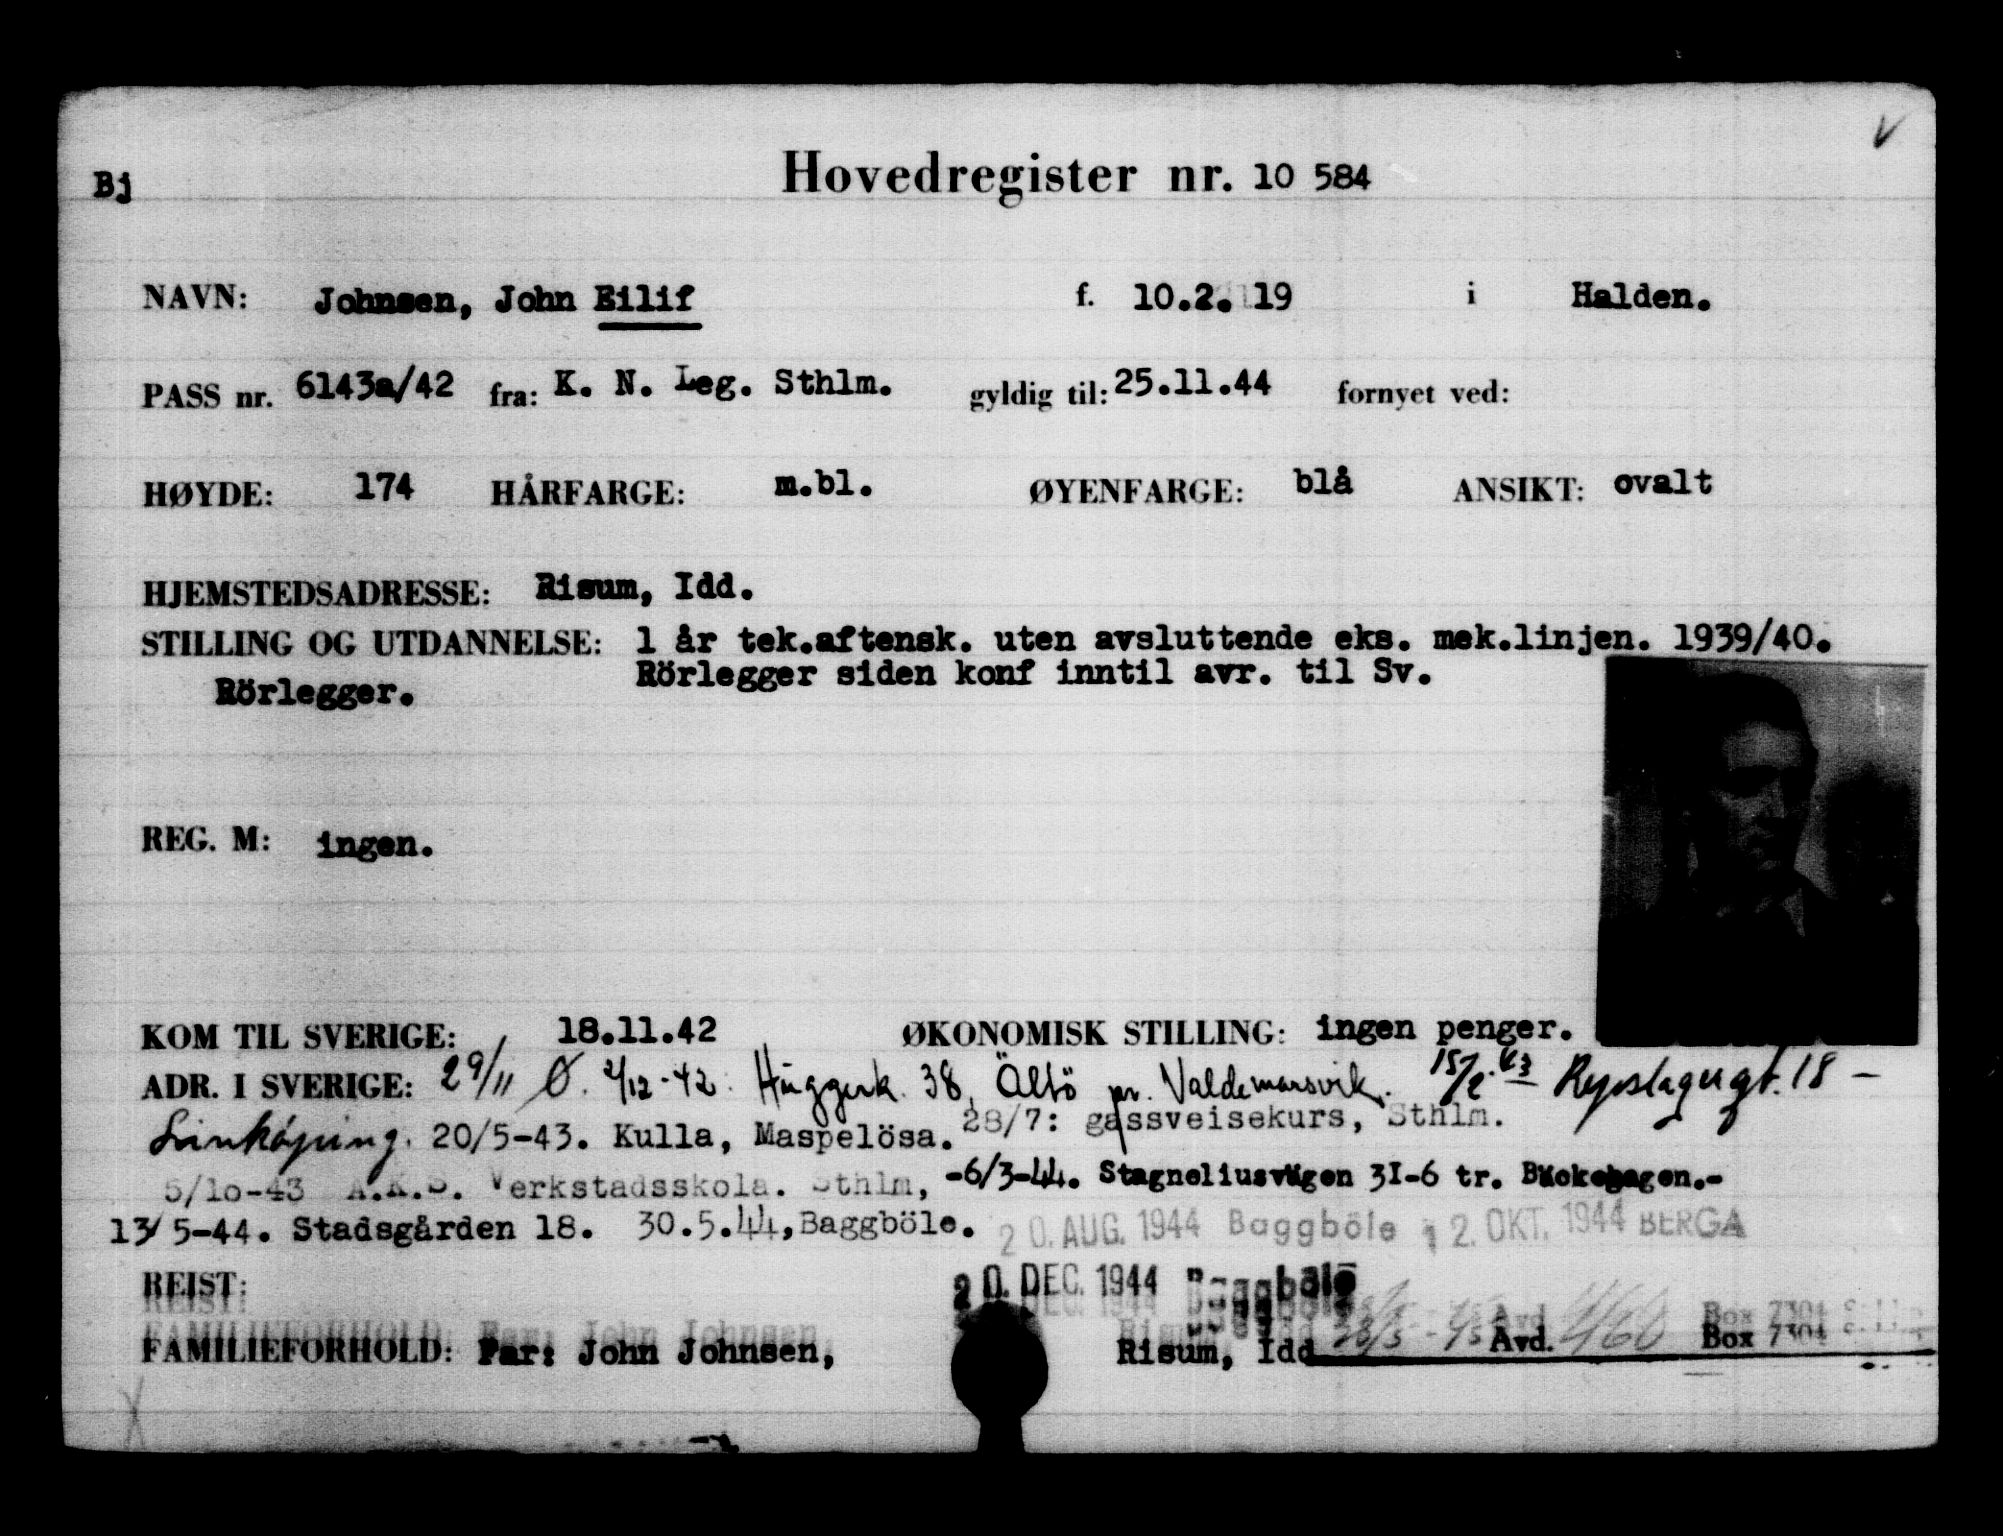 Bj
Hovedregister nr. 10 584
NAVN: Johnsen, John Eilif f. 10.2.19 i Halden.
PASS nr. 6143a/42 fra: K. N. Leg. Sthlm. gyldig til: 25.11.44 fornyet ved:
HØYDE: 174 HÅRFARGE: m.bl. ØYENFARGE: blå ANSIKT: ovalt
HJEMSTEDSADRESSE: Risum, Idd.
STILLING OG UTDANNELSE: 1 år tek.aftensk. uten avsluttende eks. mek.linjen. 1939/40.
Rörlegger siden konf inntil avr. til Sv.
Rörlegger.
REG. M: ingen.
KOM TIL SVERIGE: 18.11.42 ØKONOMISK STILLING: ingen penger.
ADR. I SVERIGE: 29/11 Ø. 2/12-42. 38, pr. Valdemarsvik. 15/2.43 18 -
Linköping. 20/5-43. Kulla, Maspelösa. 28/7: gassveisekurs, Sthlm.
5/10-43 A.K.S. Verkstadsskola. Sthlm, -6/3-44. Stagneliusvägen 31-6 tr. Bäckehagen.-
13/5-44. Stadsgården 18. 30.5.44, Baggböle. 20. AUG. 1944 Baggböle 12. OKT. 1944 BERGA
REIST: 20. DEC. 1944 Baggböle
FAMILIEFORHOLD: Far: John Johnsen, Risum, Idd Avd. 460 Box 7304